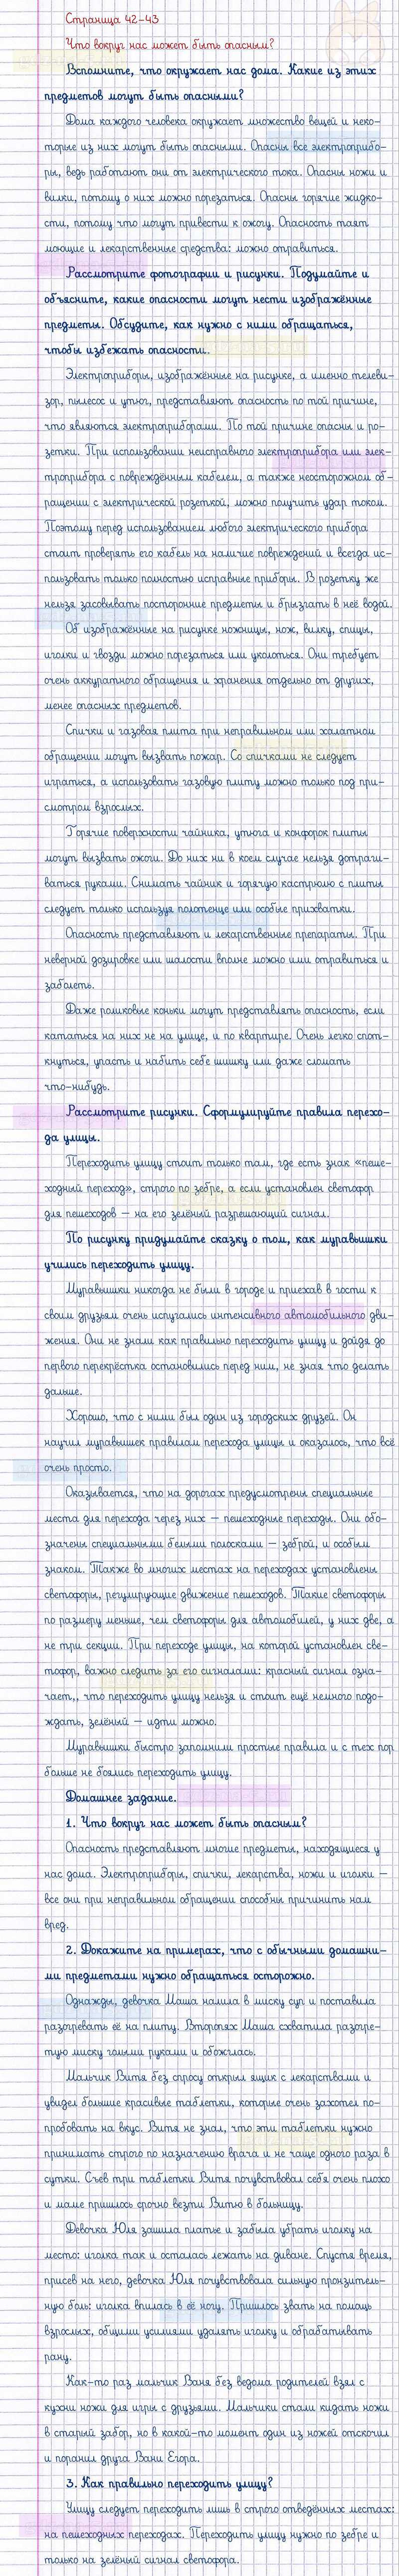 Страница 42-43
Что вокруг нас может быть опасным?
Вспомните, что окружает нас дома. Какие из этих
предметов могут быть опасными?
Дома каждого человека окружает множество вещей и неко-
торые из них могут быть опасными. Опасны все электроприбо-
ры, ведь работают они от электрического тока. Опасны ножи и
вилки, потому о них можно порезаться. Опасны горячие жидко-
сти, потому что могут привести к ожогу. Опасность таят
моющие и лекарственные средства: можно отравиться.
Рассмотрите фотографии и рисунки. Подумайте и
объясните, какие опасности могут нести изображённые
предметы. Обсудите, как нужно с ними обращаться,
чтобы избежать опасности.
Электроприборы, изображённые на рисунке, а именно телеви-
зор, пылесос и утюг, представляют опасность по той причине,
что являются электроприборами. По той причине опасны и ро-
зетки. При использовании неисправного электроприбора или элек-
троприбора с повреждённым кабелем, а также неосторожном об-
ращении с электрической розеткой, можно получить удар током.
Поэтому перед использованием любого электрического прибора
стоит проверять его кабель на наличие повреждений и всегда ис-
пользовать только полностью исправные приборы. В розетку же
нельзя засовывать посторонние предметы и брызгать в неё водой.
Об изображённые на рисунке ножницы, нож, вилку, спицы,
иголки и гвозди можно порезаться или уколоться. Они требует
очень аккуратного обращения и хранения отдельно от других,
менее опасных предметов.
Спички и газовая плита при неправильном или халатном
обращении могут вызвать пожар. Со спичками не следует
играться, а использовать газовую плиту можно только под при-
смотром взрослых.
Горячие поверхности чайника, утюга и конфорок плиты
могут вызвать ожоги. До них ни в коем случае нельзя дотраги-
ваться руками. Снимать чайник и горячую кастрюлю с плиты
следует только используя полотенце или особые прихватки.
Опасность представляют и лекарственные препараты. При
неверной дозировке или шалости вполне можно или отравиться и
заболеть.
Даже роликовые коньки могут представлять опасность, если
кататься на них не на улице, и по квартире. Очень легко спот-
кнуться, упасть и набить себе шишку или даже сломать
что-нибудь.
Рассмотрите рисунки. Сформулируйте правила перехо-
да улицы.
Переходить улицу стоит только там, где есть знак «пеше-
ходный переход», строго по зебре, а если установлен светофор
для пешеходов — на его зелёный разрешающий сигнал.
По рисунку придумайте сказку о том, как муравьишки
учились переходить улицу.
Муравьишки никогда не были в городе и приехав в гости к
своим друзьям очень испугались интенсивного автомобильного дви-
жения. Они не знали как правильно переходить улицу и дойдя до
первого перекрёстка остановились перед ним, не зная что делать
дальше.
Хорошо, что с ними был один из городских друзей. Он
научил муравьишек правилам перехода улицы и оказалось, что всё
очень просто.
Оказывается, что на дорогах предусмотрены специальные
места для перехода через них — пешеходные переходы. Они обо-
значены специальными белыми полосками — зеброй, и особым
знаком. Также во многих местах на переходах установлены
светофоры, регулирующие движение пешеходов. Такие светофоры
по размеру меньше, чем светофоры для автомобилей, у них две, а
не три секции. При переходе улицы, на которой установлен све-
тофор, важно следить за его сигналами: красный сигнал озна-
чает,, что переходить улицу нельзя и стоит ещё немного подо-
ждать, зелёный — идти можно.
Муравьишки быстро запомнили простые правила и с тех пор
больше не боялись переходить улицу.
Домашнее задание.
1. Что вокруг нас может быть опасным?
Опасность представляют многие предметы, находящиеся у
нас дома. Электроприборы, спички, лекарства, ножи и иголки —
все они при неправильном обращении способны причинить нам
вред.
2. Докажите на примерах, что с обычными домашни-
ми предметами нужно обращаться осторожно.
Однажды, девочка Маша налила в миску суп и поставила
разогревать её на плиту. Второпях Маша схватила разогре-
тую миску голыми руками и обожглась.
Мальчик Витя без спросу открыл ящик с лекарствами и
увидел большие красивые таблетки, которые очень захотел по-
пробовать на вкус. Витя не знал, что эти таблетки нужно
принимать строго по назначению врача и не чаще одного раза в
сутки. Съев три таблетки Витя почувствовал себя очень плохо
и маме пришлось срочно везти Витю в больницу.
Девочка Юля зашила платье и забыла убрать иголку на
место: иголка так и осталась лежать на диване. Спустя время,
присев на него, девочка Юля почувствовала сильную пронзитель-
ную боль: иголка впилась в её ногу. Пришлось звать на помощь
взрослых, общими усилиями удалять иголку и обрабатывать
рану.
Как-то раз мальчик Ваня без ведома родителей взял с
кухни ножи для игры с друзьями. Мальчики стали кидать ножи
в старый забор, но в какой-то момент один из ножей отскочил
и поранил друга Вани Егора.
3. Как правильно переходить улицу?
Улицу следует переходить лишь в строго отведённых местах:
на пешеходных переходах. Переходить улицу нужно по зебре и
только на зелёный сигнал светофора.